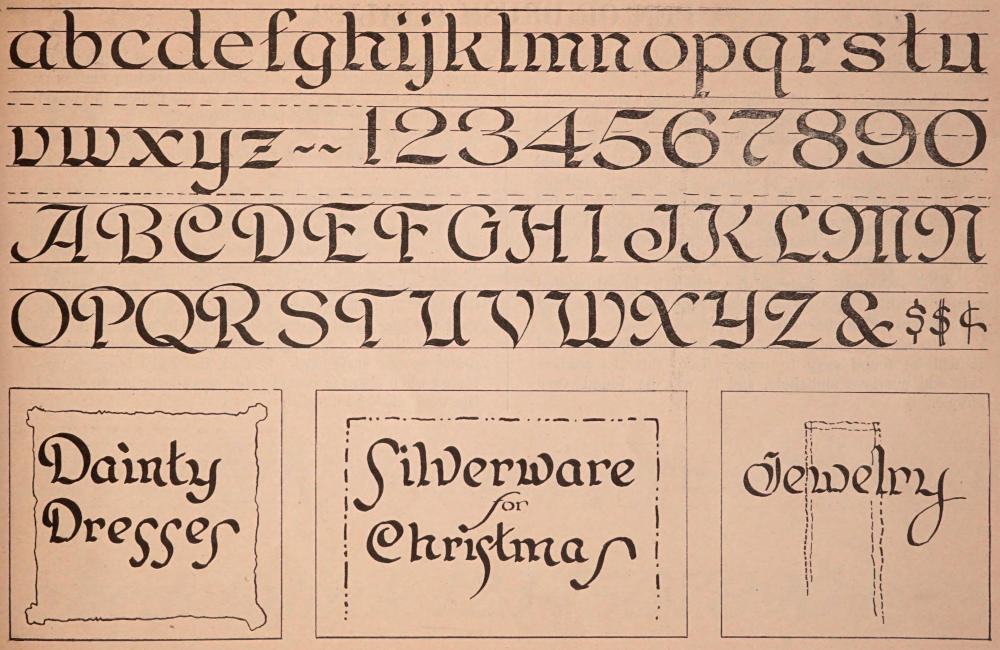 abcdefghijklmnopqrstu
vwxyz~~1234567890
ABCDEFGHIJKLMN
OPQRSTUVWXYZ&$$¢
Dainty
Dresses
Silverware
for
Christmas
Jewelry